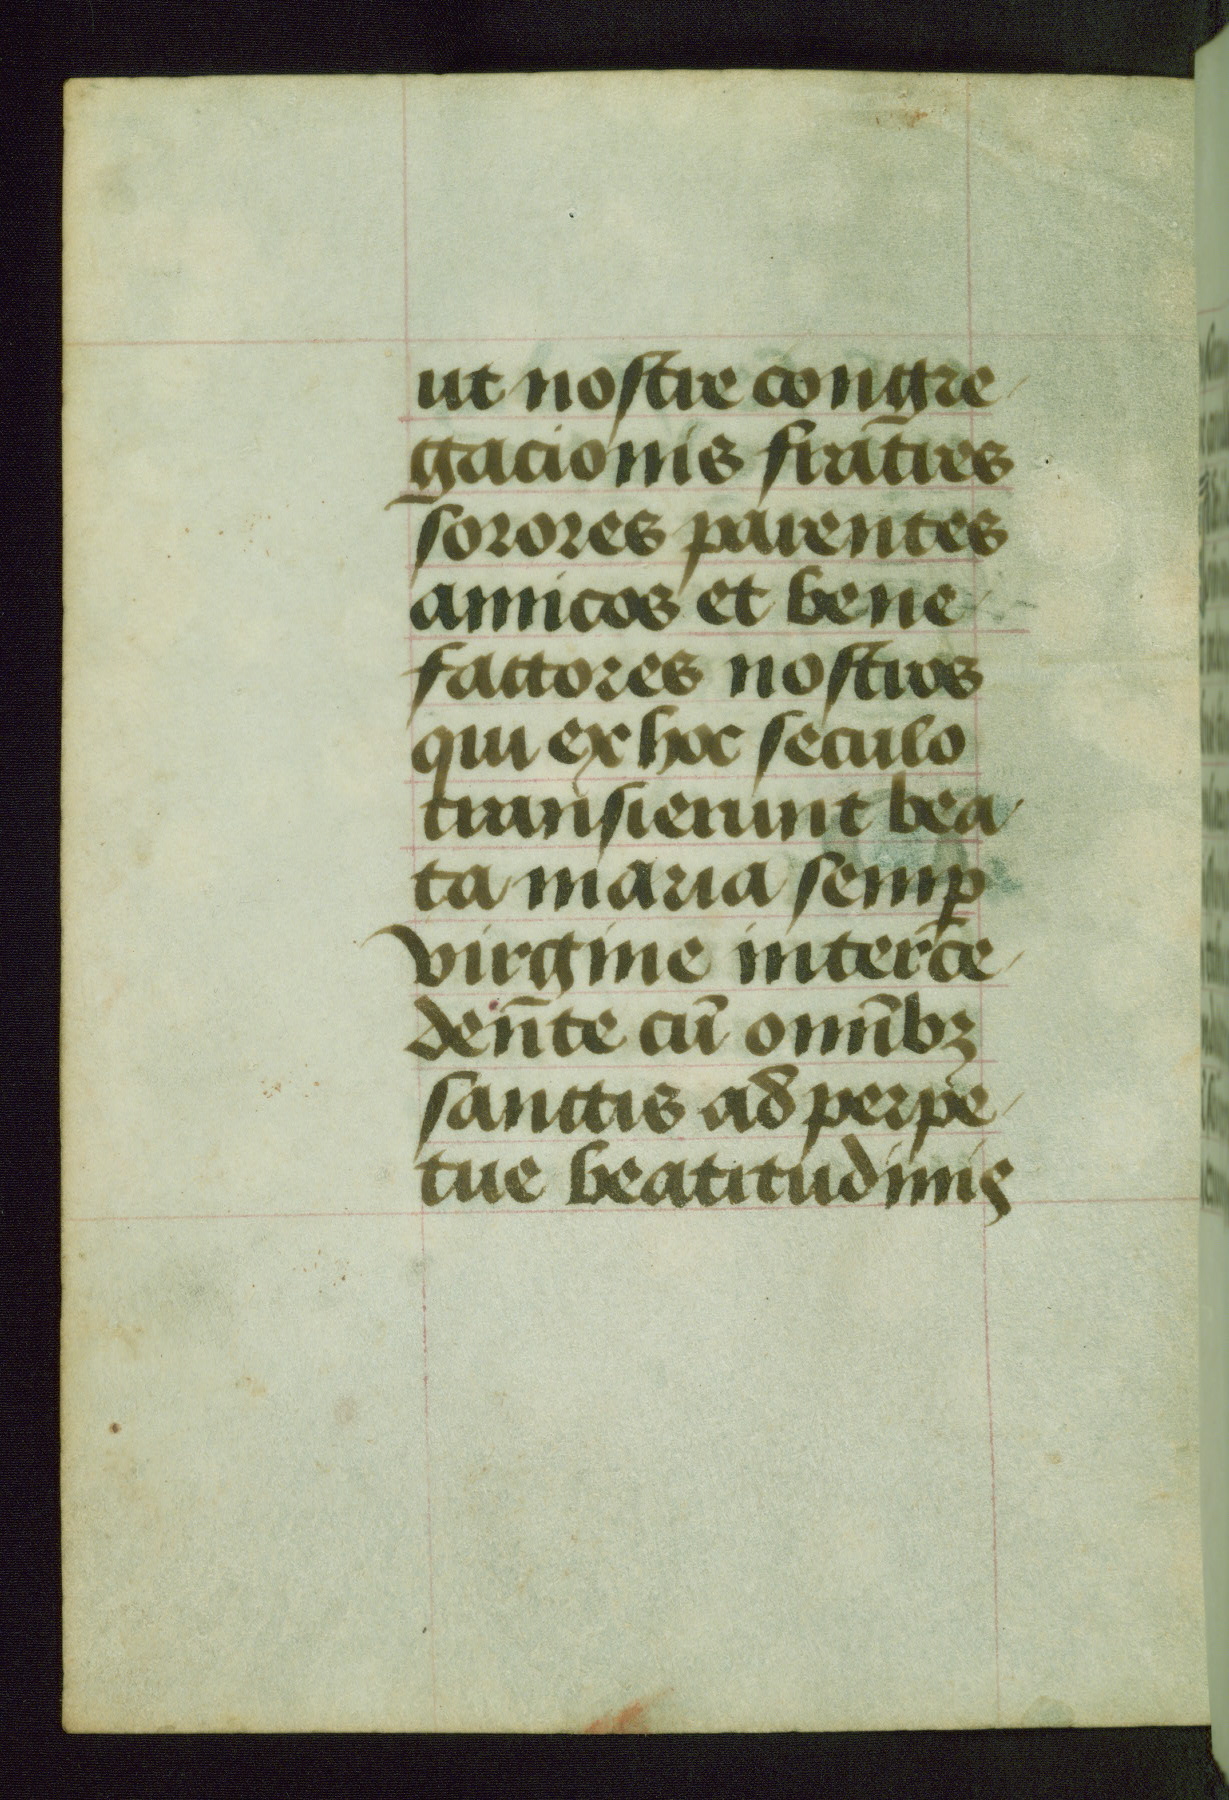 ut nostre congre
gacionis fratres
sorores parentes
amicos et bene
factores nostros
qui ex hoc seculo
transierunt bea
ta maria semꝑ
virgine interce
dente cū omībꝫ
sanctis ad perpe
tue beatitudinis